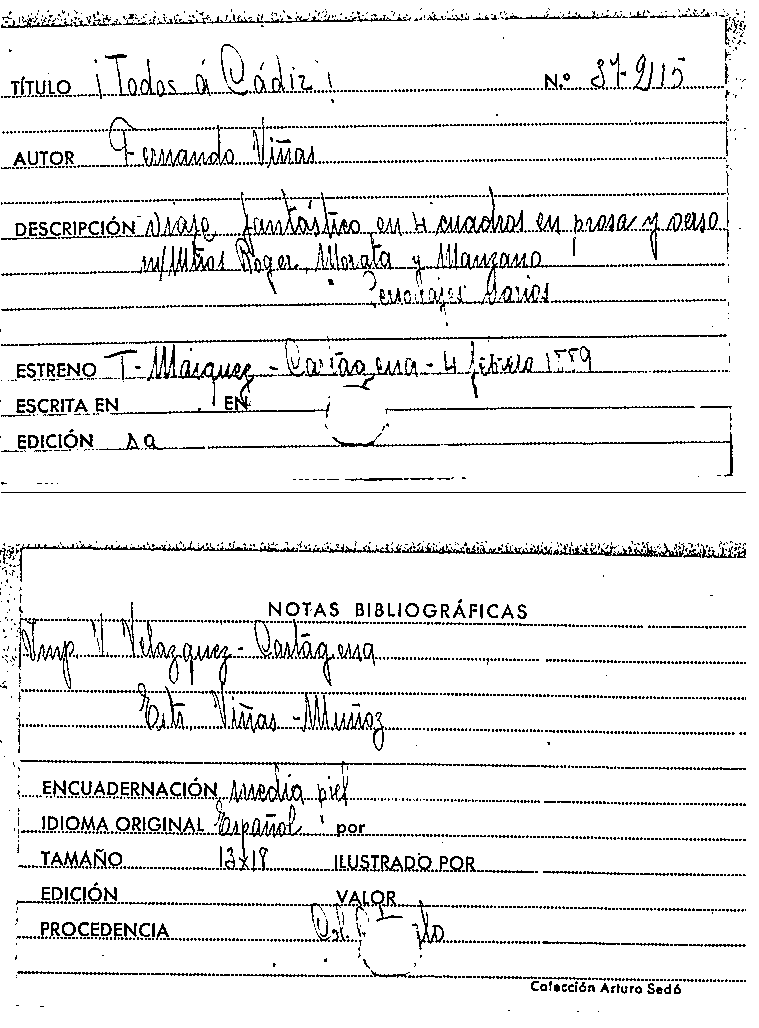 TÍTULO ¡Todos á Cádiz! N.º 37-2115
AUTOR Fernando Viñas
DESCRIPCIÓN Viaje fantástico en 4 cuadros en prosa y verso
m/Mtros Roger, Morata y Manzano
Personajes Varios
ESTRENO T- Márquez - Cartagena - 4 febrero 1889
ESCRITA EN EN
EDICIÓN sa
NOTAS BIBLIOGRÁFICAS
Imp V Velazquez - Cartagena
Viñas - Muñoz
ENCUADERNACIÓN media piel
IDIOMA ORIGINAL Español por
TAMAÑO 13x18 ILUSTRADO POR
EDICIÓN VALOR
PROCEDENCIA
Colección Arturo Sedó